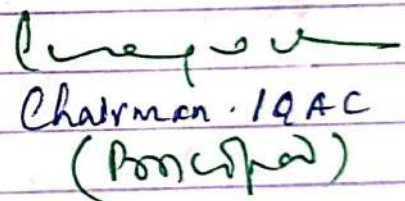 Chairman. IQAC
(Principal)